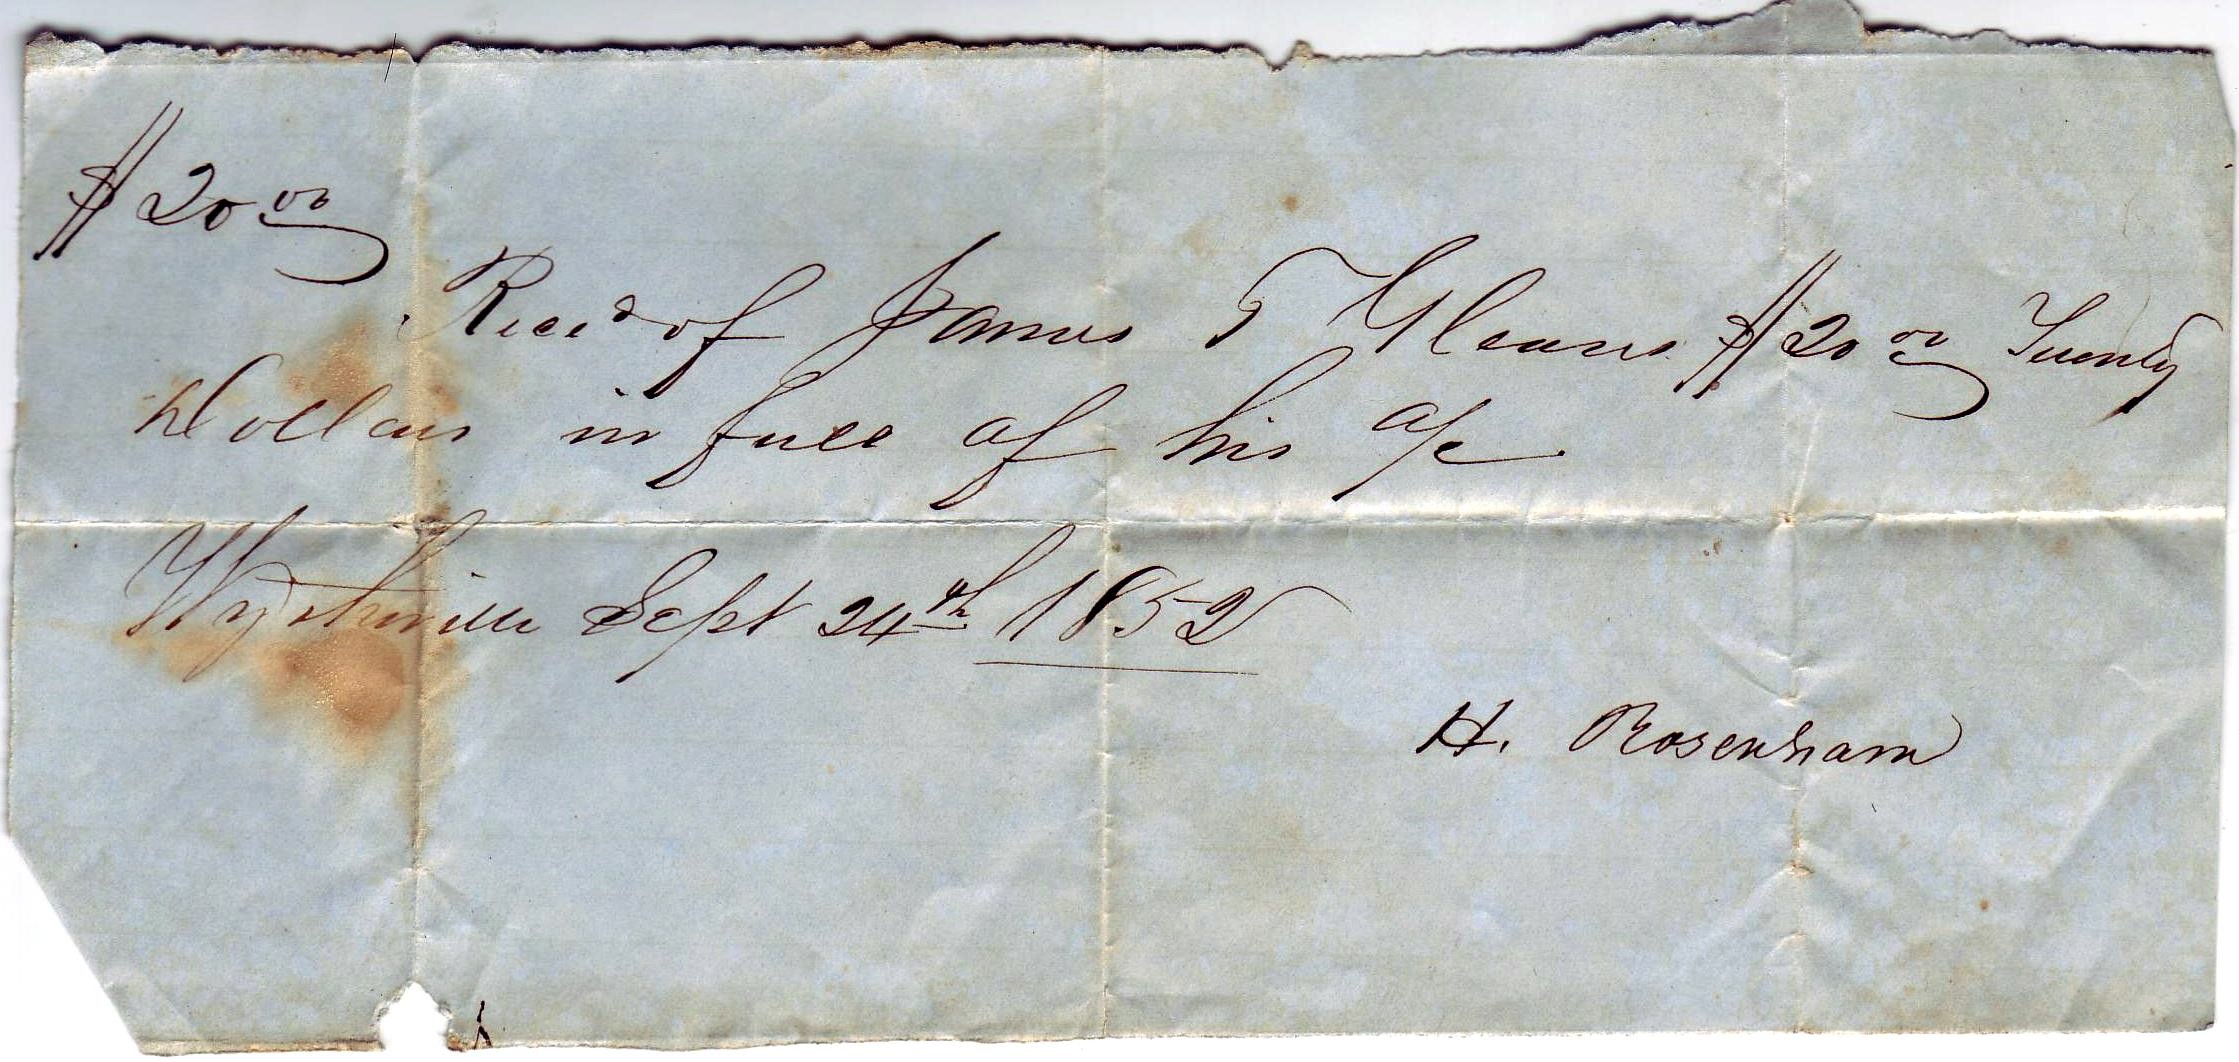 $20 00
Recd of James T Gleaves $20 00 Twenty
Dollars in full of his a/c
Wytheville Sept 24th 1852
H. Rosenham